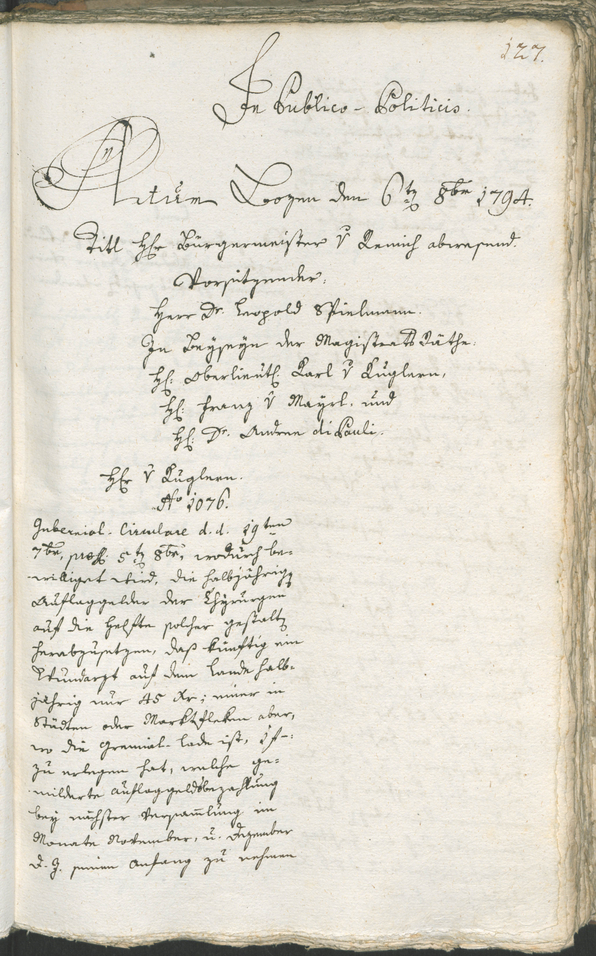 127.
In Publico-Politicis.
Actum Bozen den 6tn 8bre 1794.
Titl Her Bürgermeister v Remich abwesend.
Vorsitzender,
Herr Dr. Leopold Spielmann.
In Beyseyn der Magistrats Räthe.
H: Oberlieut: Karl v Kuglern,
H: Franz v Mayrl. und
H: Dr. Andree di Pauli.
Her v Kuglern.
No 1076.
Gubernial-Circulare d. d. 19ten
7bre, pres: 5tn 8bre, wodurch be=
williget wird, die halbjährign
Auflaggelder der Chyrurgen
auf die Helfte solcher gestaltn
herabzusetzen, daß künftig ein
Wundarzt auf dem Lande halb-
jährig nur 45 Xr; einer in
Städten oder Marktfleken aber,
wo die Gremial-Lade ist, 1f-:
zu erlegen hat, welche ge=
milderte Auflaggeldsbezahlung
bey nächster Versamlung im
Monate November, u. Dezember
d. J. seinen Anfang zu nehmen